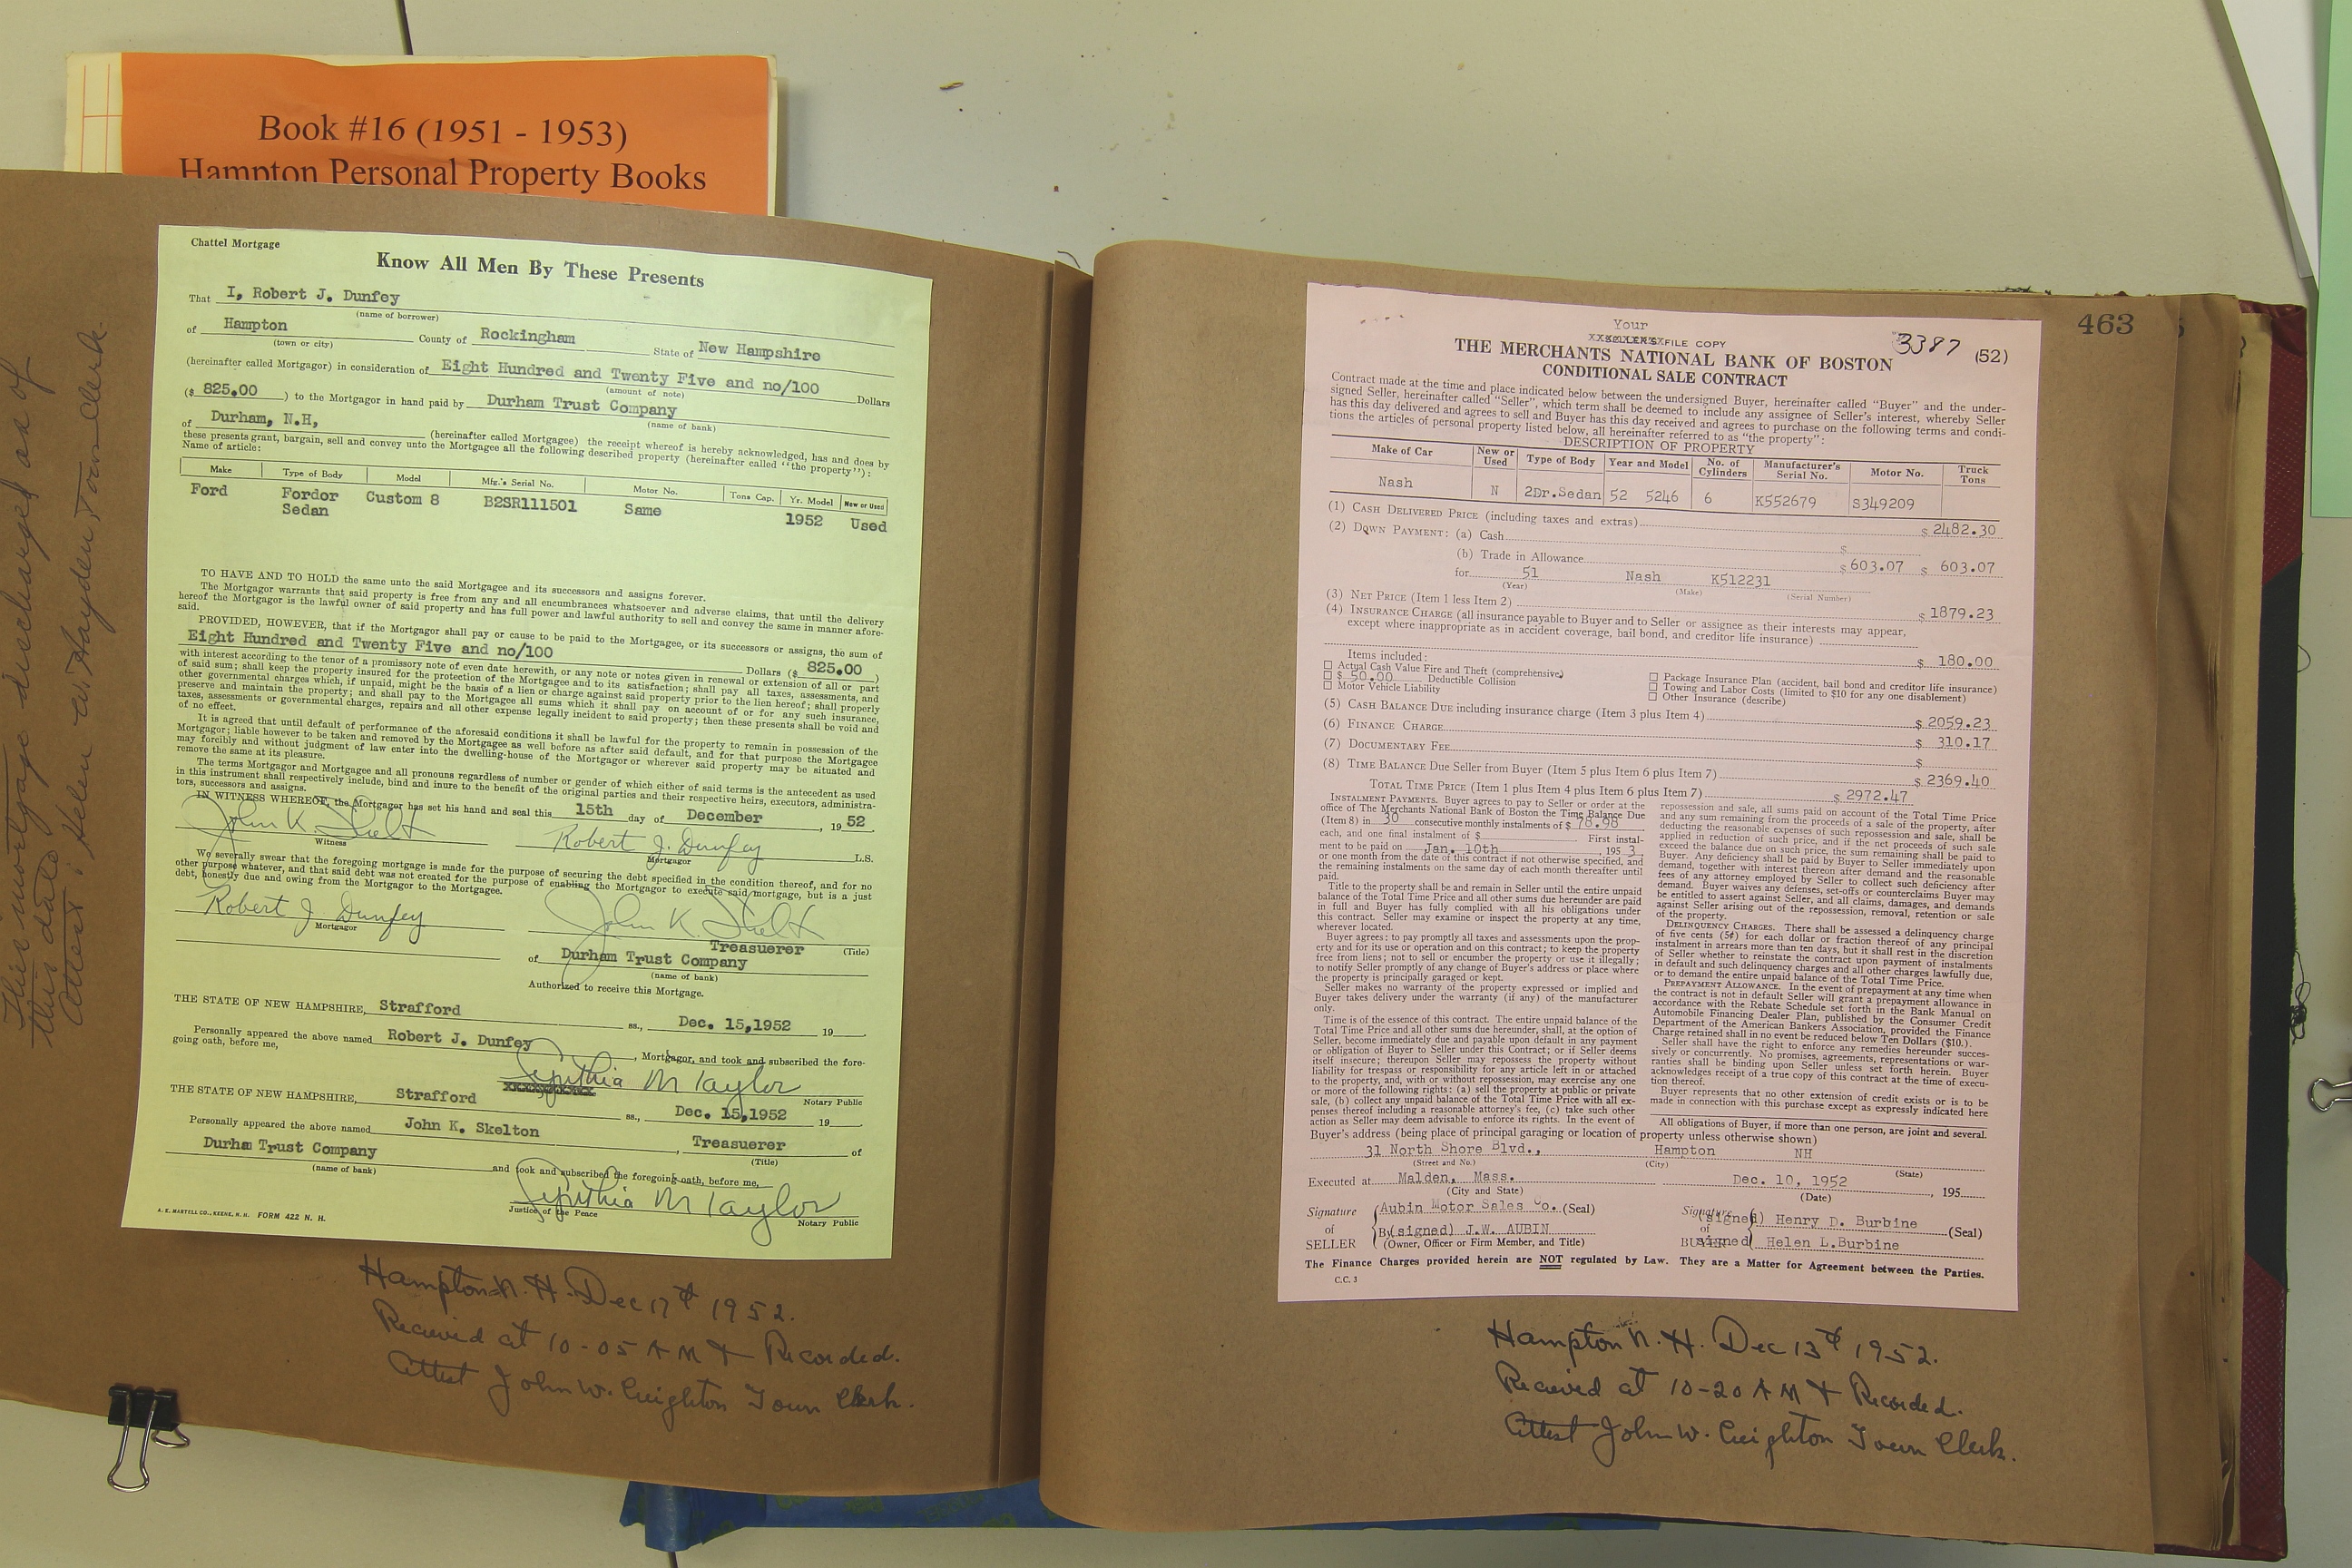 Book #16 (1951 - 1953)
Hampton Personal Property Books
This mortgage discharged as of
this date
Attest: Helen W. Hayden, Town Clerk.
Chattel Mortgage
Know All Men By These Presents
That I, Robert J. Dunfey
(name of borrower)
of Hampton County of Rockingham State of New Hampshire
(town or city)
(hereinafter called Mortgagor) in consideration of Eight Hundred and Twenty Five and no/100 Dollars
(amount of note)
($ 825.00 ) to the Mortgagor in hand paid by Durham Trust Company
(name of bank)
of Durham, N.H, (hereinafter called Mortgagee) the receipt whereof is hereby acknowledged, has and does by
these presents grant, bargain, sell and convey unto the Mortgagee all the following described property (hereinafter called "the property"):
Name of article:
Make Type of Body Model Mfg.'s Serial No. Motor No. Tons Cap. Yr. Model New or Used
Ford Fordor Custom 8 B2SR111501 Same 1952 Used
Sedan
TO HAVE AND TO HOLD the same unto the said Mortgagee and its successors and assigns forever.
The Mortgagor warrants that said property is free from any and all encumbrances whatsoever and adverse claims, that until the delivery
hereof the Mortgagor is the lawful owner of said property and has full power and lawful authority to sell and convey the same in manner afore-
said.
PROVIDED, HOWEVER, that if the Mortgagor shall pay or cause to be paid to the Mortgagee, or its successors or assigns, the sum of
Eight Hundred and Twenty Five and no/100 Dollars ($ 825.00 )
with interest according to the tenor of a promissory note of even date herewith, or any note or notes given in renewal or extension of all or part
of said sum; shall keep the property insured for the protection of the Mortgagee and to its satisfaction; shall pay all taxes, assessments, and
other governmental charges which, if unpaid, might be the basis of a lien or charge against said property prior to the lien hereof; shall properly
preserve and maintain the property; and shall pay to the Mortgagee all sums which it shall pay on account of or for any such insurance,
taxes, assessments or governmental charges, repairs and all other expense legally incident to said property; then these presents shall be void and
of no effect.
It is agreed that until default of performance of the aforesaid conditions it shall be lawful for the property to remain in possession of the
Mortgagor; liable however to be taken and removed by the Mortgagee as well before as after said default, and for that purpose the Mortgagee
may forcibly and without judgment of law enter into the dwelling-house of the Mortgagor or wherever said property may be situated and
remove the same at its pleasure.
The terms Mortgagor and Mortgagee and all pronouns regardless of number or gender of which either of said terms is the antecedent as used
in this instrument shall respectively include, bind and inure to the benefit of the original parties and their respective heirs, executors, administra-
tors, successors and assigns.
IN WITNESS WHEREOF, the Mortgagor has set his hand and seal this 15th day of December , 19 52
John K. Skelt Robert J. Dunfey L.S.
Witness Mortgagor
We severally swear that the foregoing mortgage is made for the purpose of securing the debt specified in the condition thereof, and for no
other purpose whatever, and that said debt was not created for the purpose of enabling the Mortgagor to execute said mortgage, but is a just
debt, honestly due and owing from the Mortgagor to the Mortgagee.
Robert J. Dunfey John K. Skelt
Mortgagor Treasuerer (Title)
of Durham Trust Company
(name of bank)
Authorized to receive this Mortgage.
THE STATE OF NEW HAMPSHIRE, Strafford ss., Dec. 15,1952 19
Personally appeared the above named Robert J. Dunfey , Mortgagor, and took and subscribed the fore-
going oath, before me,
Cynthia M Taylor
Notary Public
THE STATE OF NEW HAMPSHIRE, Strafford ss., Dec. 15,1952 19
Personally appeared the above named John K. Skelton , Treasuerer of
(Title)
Durham Trust Company and took and subscribed the foregoing oath, before me,
(name of bank)
Cynthia M Taylor
Justice of the Peace Notary Public
A. E. MARTELL CO., KEENE, N. H. FORM 422 N. H.
Hampton N. H. Dec 17th 1952.
Recieved at 10-05 A M & Recorded.
Attest John W. Creighton Town Clerk.
463
Your
XXSELLER'SXFILE COPY
3387 (52)
THE MERCHANTS NATIONAL BANK OF BOSTON
CONDITIONAL SALE CONTRACT
Contract made at the time and place indicated below between the undersigned Buyer, hereinafter called "Buyer" and the under-
signed Seller, hereinafter called "Seller", which term shall be deemed to include any assignee of Seller's interest, whereby Seller
has this day delivered and agrees to sell and Buyer has this day received and agrees to purchase on the following terms and condi-
tions the articles of personal property listed below, all hereinafter referred to as "the property":
DESCRIPTION OF PROPERTY
Make of Car New or Used Type of Body Year and Model No. of Cylinders Manufacturer's Serial No. Motor No. Truck Tons
Nash N 2Dr.Sedan 52 5246 6 K552679 S349209
(1) CASH DELIVERED PRICE (including taxes and extras) $ 2482.30
(2) DOWN PAYMENT: (a) Cash $
(b) Trade in Allowance $ 603.07 $ 603.07
for 51 Nash K512231
(Year) (Make) (Serial Number)
(3) NET PRICE (Item 1 less Item 2) $ 1879.23
(4) INSURANCE CHARGE (all insurance payable to Buyer and to Seller or assignee as their interests may appear,
except where inappropriate as in accident coverage, bail bond, and creditor life insurance)
$ 180.00
Items included:
☐ Actual Cash Value Fire and Theft (comprehensive) ☐ Package Insurance Plan (accident, bail bond and creditor life insurance)
☐ $ 50.00 Deductible Collision ☐ Towing and Labor Costs (limited to $10 for any one disablement)
☐ Motor Vehicle Liability ☐ Other Insurance (describe)
(5) CASH BALANCE DUE including insurance charge (Item 3 plus Item 4) $ 2059.23
(6) FINANCE CHARGE $ 310.17
(7) DOCUMENTARY FEE $
(8) TIME BALANCE DUE Seller from Buyer (Item 5 plus Item 6 plus Item 7) $ 2369.40
TOTAL TIME PRICE (Item 1 plus Item 4 plus Item 6 plus Item 7) $ 2972.47
INSTALMENT PAYMENTS. Buyer agrees to pay to Seller or order at the
office of The Merchants National Bank of Boston the Time Balance Due
(Item 8) in 30 consecutive monthly instalments of $ 78.98
each, and one final instalment of $ First instal-
ment to be paid on Jan. 10th , 195 3
or one month from the date of this contract if not otherwise specified, and
the remaining instalments on the same day of each month thereafter until
paid.
Title to the property shall be and remain in Seller until the entire unpaid
balance of the Total Time Price and all other sums due hereunder are paid
in full and Buyer has fully complied with all his obligations under
this contract. Seller may examine or inspect the property at any time,
wherever located.
Buyer agrees: to pay promptly all taxes and assessments upon the prop-
erty and for its use or operation and on this contract; to keep the property
free from liens; not to sell or encumber the property or use it illegally;
to notify Seller promptly of any change of Buyer's address or place where
the property is principally garaged or kept.
Seller makes no warranty of the property expressed or implied and
Buyer takes delivery under the warranty (if any) of the manufacturer
only.
Time is of the essence of this contract. The entire unpaid balance of the
Total Time Price and all other sums due hereunder, shall, at the option of
Seller, become immediately due and payable upon default in any payment
or obligation of Buyer to Seller under this Contract; or if Seller deems
itself insecure; thereupon Seller may repossess the property without
liability for trespass or responsibility for any article left in or attached
to the property, and, with or without repossession, may exercise any one
or more of the following rights: (a) sell the property at public or private
sale, (b) collect any unpaid balance of the Total Time Price with all ex-
penses thereof including a reasonable attorney's fee, (c) take such other
action as Seller may deem advisable to enforce its rights. In the event of
repossession and sale, all sums paid on account of the Total Time Price
and any sum remaining from the proceeds of a sale of the property, after
deducting the reasonable expenses of such repossession and sale, shall be
applied in reduction of such price, and if the net proceeds of such sale
exceed the balance due on such price, the sum remaining shall be paid to
Buyer. Any deficiency shall be paid by Buyer to Seller immediately upon
demand, together with interest thereon after demand and the reasonable
fees of any attorney employed by Seller to collect such deficiency after
demand. Buyer waives any defenses, set-offs or counterclaims Buyer may
be entitled to assert against Seller, and all claims, damages, and demands
against Seller arising out of the repossession, removal, retention or sale
of the property.
DELINQUENCY CHARGES. There shall be assessed a delinquency charge
of five cents (5¢) for each dollar or fraction thereof of any principal
instalment in arrears more than ten days, but it shall rest in the discretion
of Seller whether to reinstate the contract upon payment of instalments
in default and such delinquency charges and all other charges lawfully due,
or to demand the entire unpaid balance of the Total Time Price.
PREPAYMENT ALLOWANCE. In the event of prepayment at any time when
the contract is not in default Seller will grant a prepayment allowance in
accordance with the Rebate Schedule set forth in the Bank Manual on
Automobile Financing Dealer Plan, published by the Consumer Credit
Department of the American Bankers Association, provided the Finance
Charge retained shall in no event be reduced below Ten Dollars ($10.).
Seller shall have the right to enforce any remedies hereunder succes-
sively or concurrently. No promises, agreements, representations or war-
ranties shall be binding upon Seller unless set forth herein. Buyer
acknowledges receipt of a true copy of this contract at the time of execu-
tion thereof.
Buyer represents that no other extension of credit exists or is to be
made in connection with this purchase except as expressly indicated here
All obligations of Buyer, if more than one person, are joint and several.
Buyer's address (being place of principal garaging or location of property unless otherwise shown)
31 North Shore Blvd., Hampton NH
(Street and No.) (City) (State)
Executed at Malden, Mass. Dec. 10, 1952 , 195
(City and State) (Date)
Signature Aubin Motor Sales Co. (Seal) Signature (signed) Henry D. Burbine
of By (signed) J.W. AUBIN of (Seal)
SELLER (Owner, Officer or Firm Member, and Title) BUYER signed Helen L.Burbine
The Finance Charges provided herein are NOT regulated by Law. They are a Matter for Agreement between the Parties.
C.C. 3
Hampton N. H. Dec 13th 1952.
Recieved at 10-20 A M & Recorded.
Attest John W. Creighton Town Clerk.